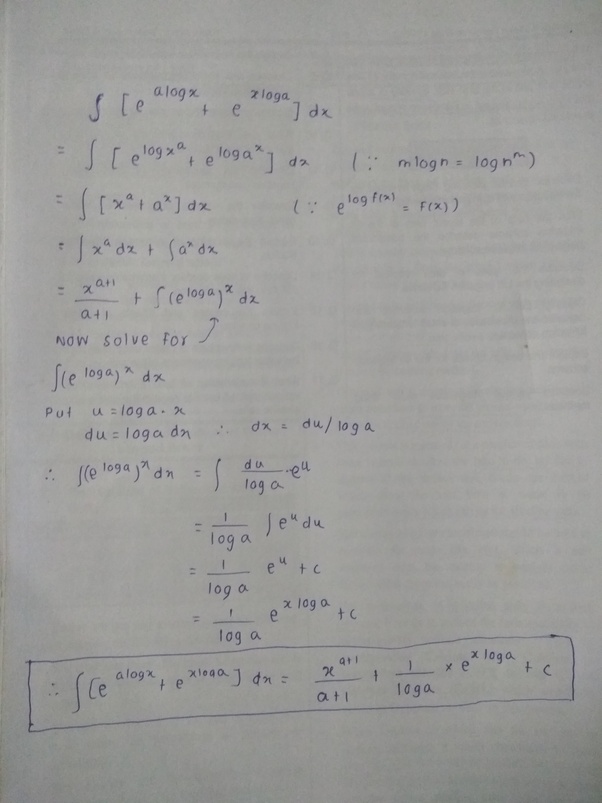 ∫ [e^{a log x} + e^{x log a}] dx
= ∫ [e^{log x^a} + e^{log a^x}] dx (∵ m log n = log n^m)
= ∫ [x^a + a^x] dx (∵ e^{log f(x)} = F(x))
= ∫ x^a dx + ∫ a^x dx
= x^{a+1}/a+1 + ∫ (e^{log a})^x dx
NOW solve for ↗
∫(e^{log a})^x dx
Put u = log a · x
du = log a dx ∴ dx = du/log a
∴ ∫(e^{log a})^x dx = ∫ du/log a · e^u
= 1/log a ∫ e^u du
= 1/log a e^u + c
= 1/log a e^{x log a} + c
∴ ∫[e^{a log x} + e^{x log a}] dx = x^{a+1}/a+1 + 1/log a × e^{x log a} + c